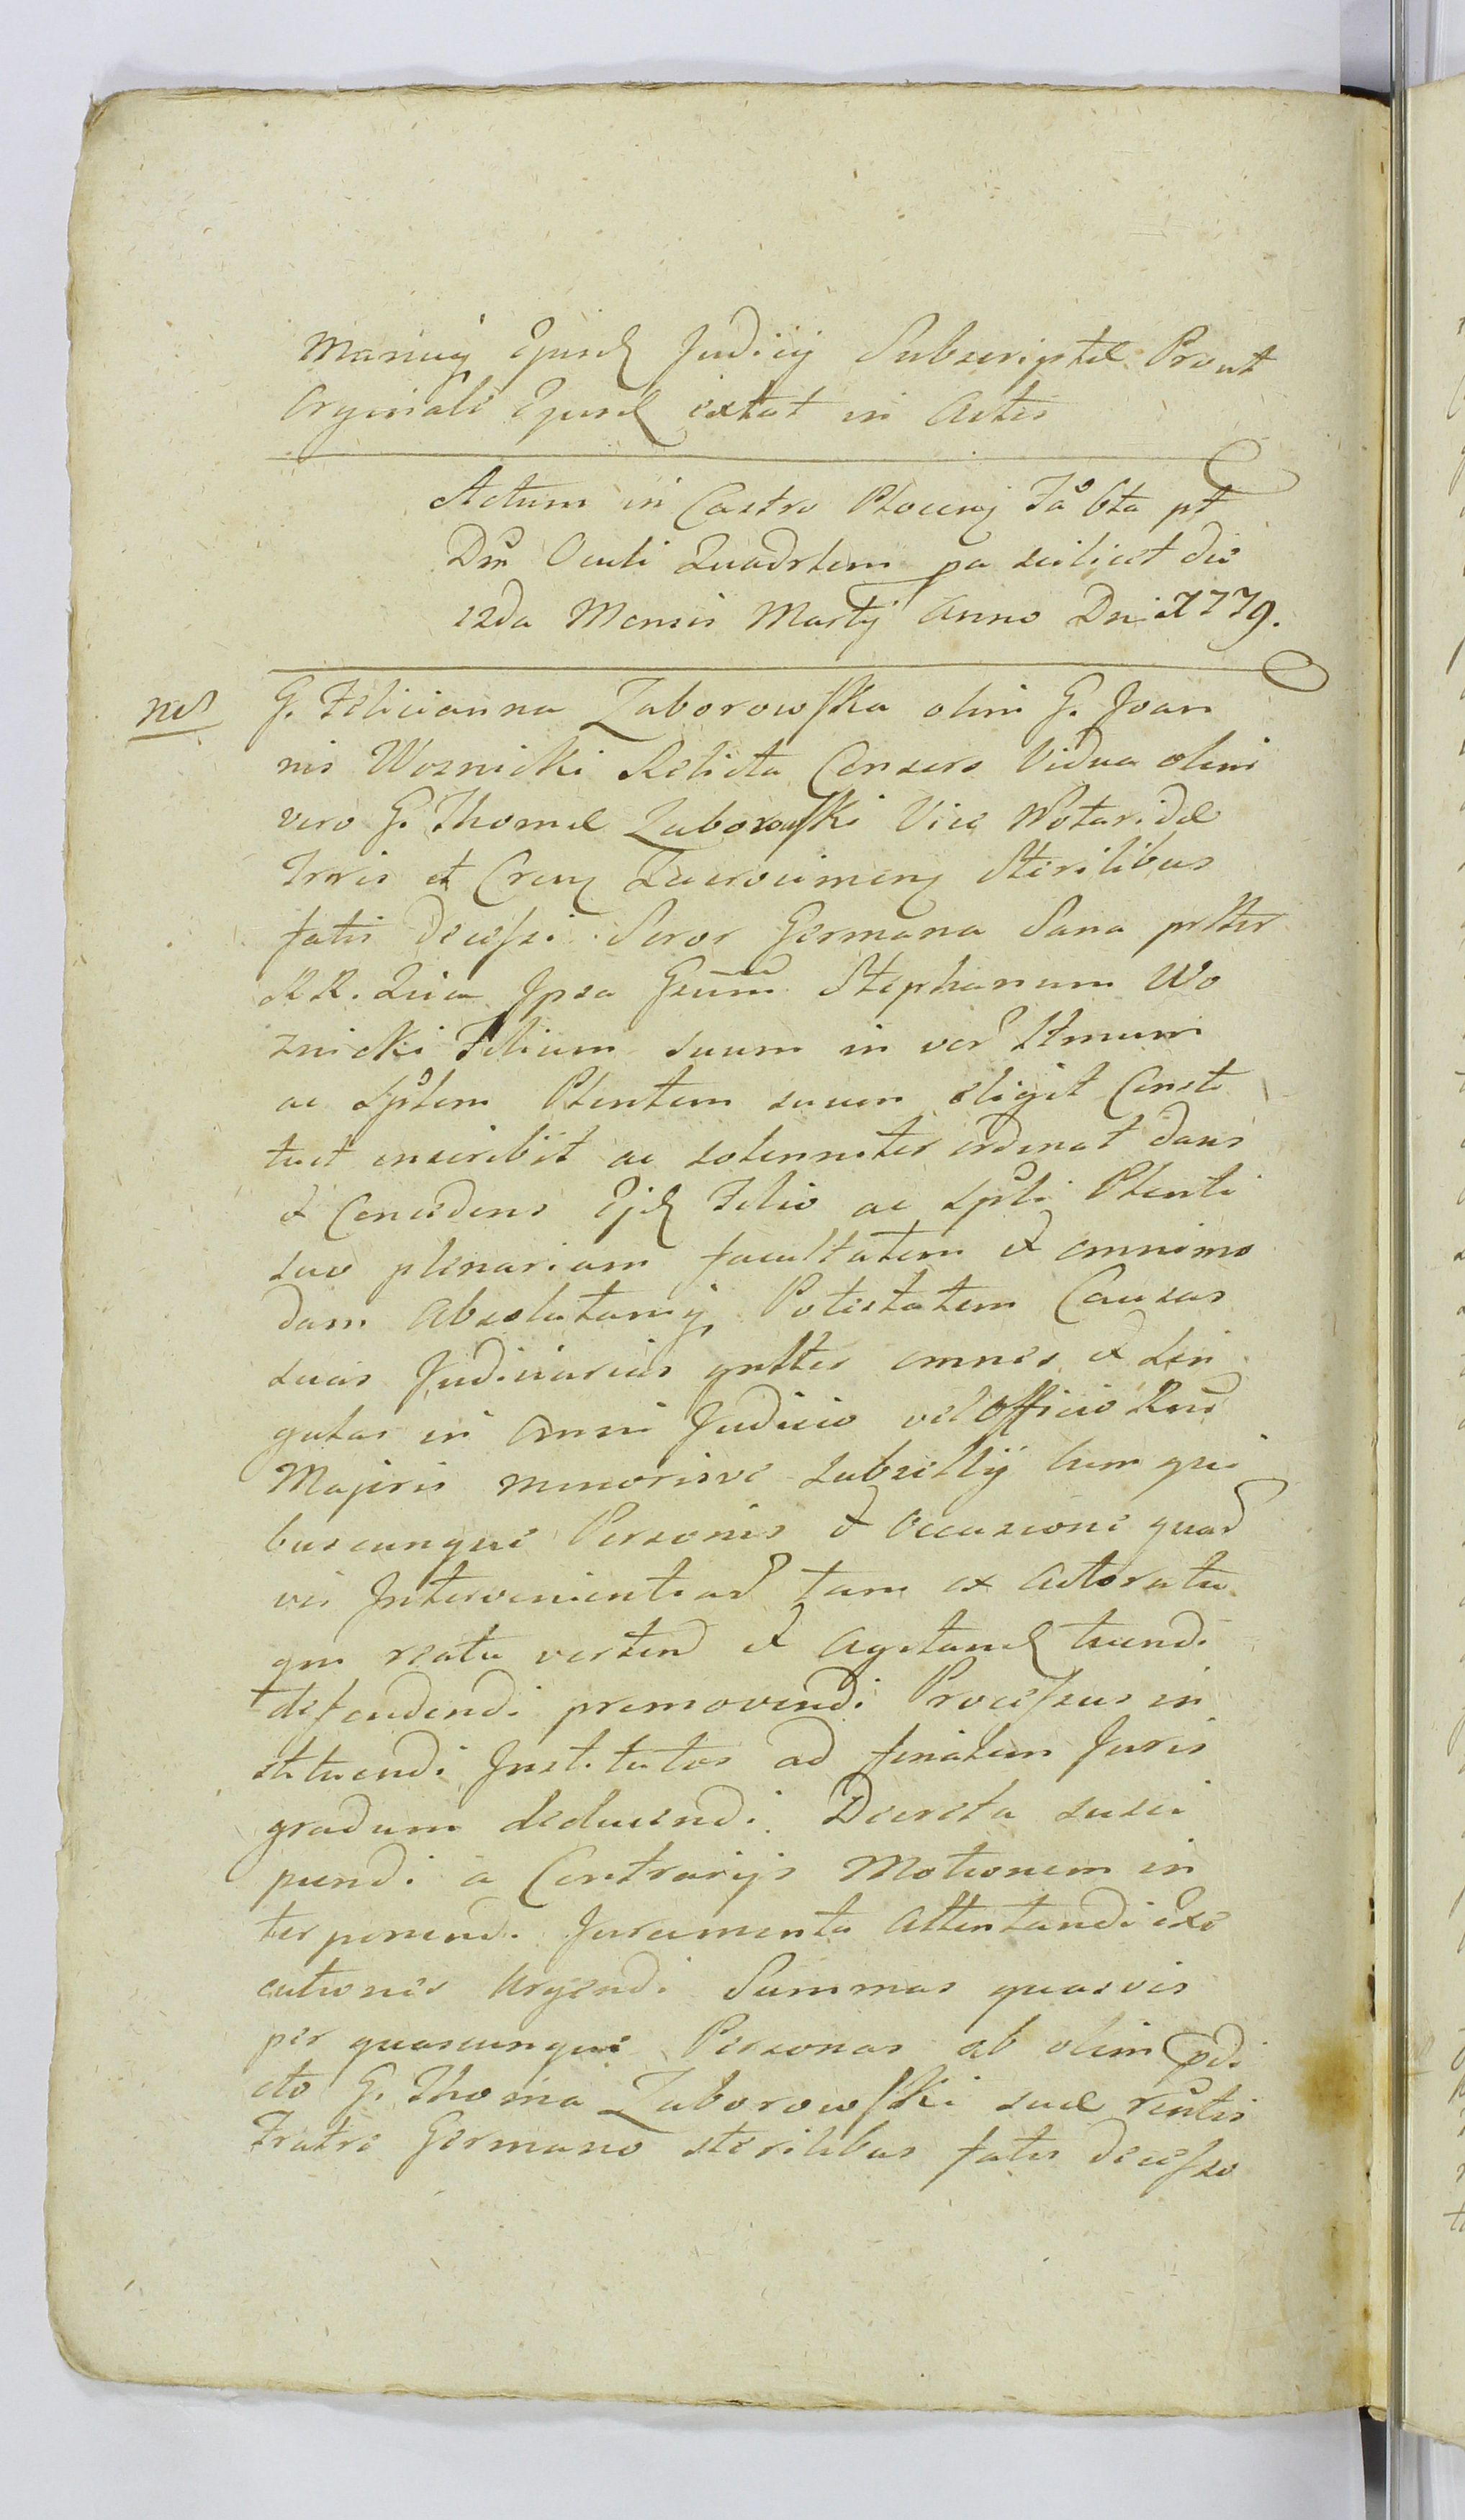 Manuq Ejusd Judicij Subscriptae Prout
Orginale Ejusd extat in Actis
Actum in Castro Plocenj Fa 6ta pt
Dm Oculi Quadrlem pa scilicet die
12da Mensis Martij Anno Dni 1779.
ms G. Felicianna Zaborowska olim G. Joan
nis Woznicki Relicta Consors Vidua olim
vero G. Thomae Zaborowski Vice
Trris et Zacrocimenj Sterilibus
fatis decessi Soror Germana Sana prltter
RR. Quia Ipsa Gsum Stephanum Wo
znicki Filium suum in ver Ltmum
ac Splem Plentem suum eligit Consti
tuit inscribit ac solenniter ordinat dans
et Concedens Ejd Filio ac Spli Plenti
suo plenariam facultatem et omnimo
dam Absolutamq Potestatem Causas
suas Judiciarias gnltter omnes et sin
gulas in omni Judicio vel Officio Rni
Majoris minorisve Subsellij cum qui
buscunque Personis et Occasione quad
vis Intervenientiad tam ex Actoratu
qm reatu vertend et Agitand tuendi
defendendi promovendi Processus in
stituendi Institutos ad finalem Juris
gradum deducendi Decreta susci
piendi a Contrarijs Motionem in
terponendi Juramenta Attentandi Exe
cutiones Urgendi Summas quasvis
per quascunque Personas ab olim pdi
cto G. Thoma Zaborowski suae rentis
Fratre Germano sterilibus fatis decesso